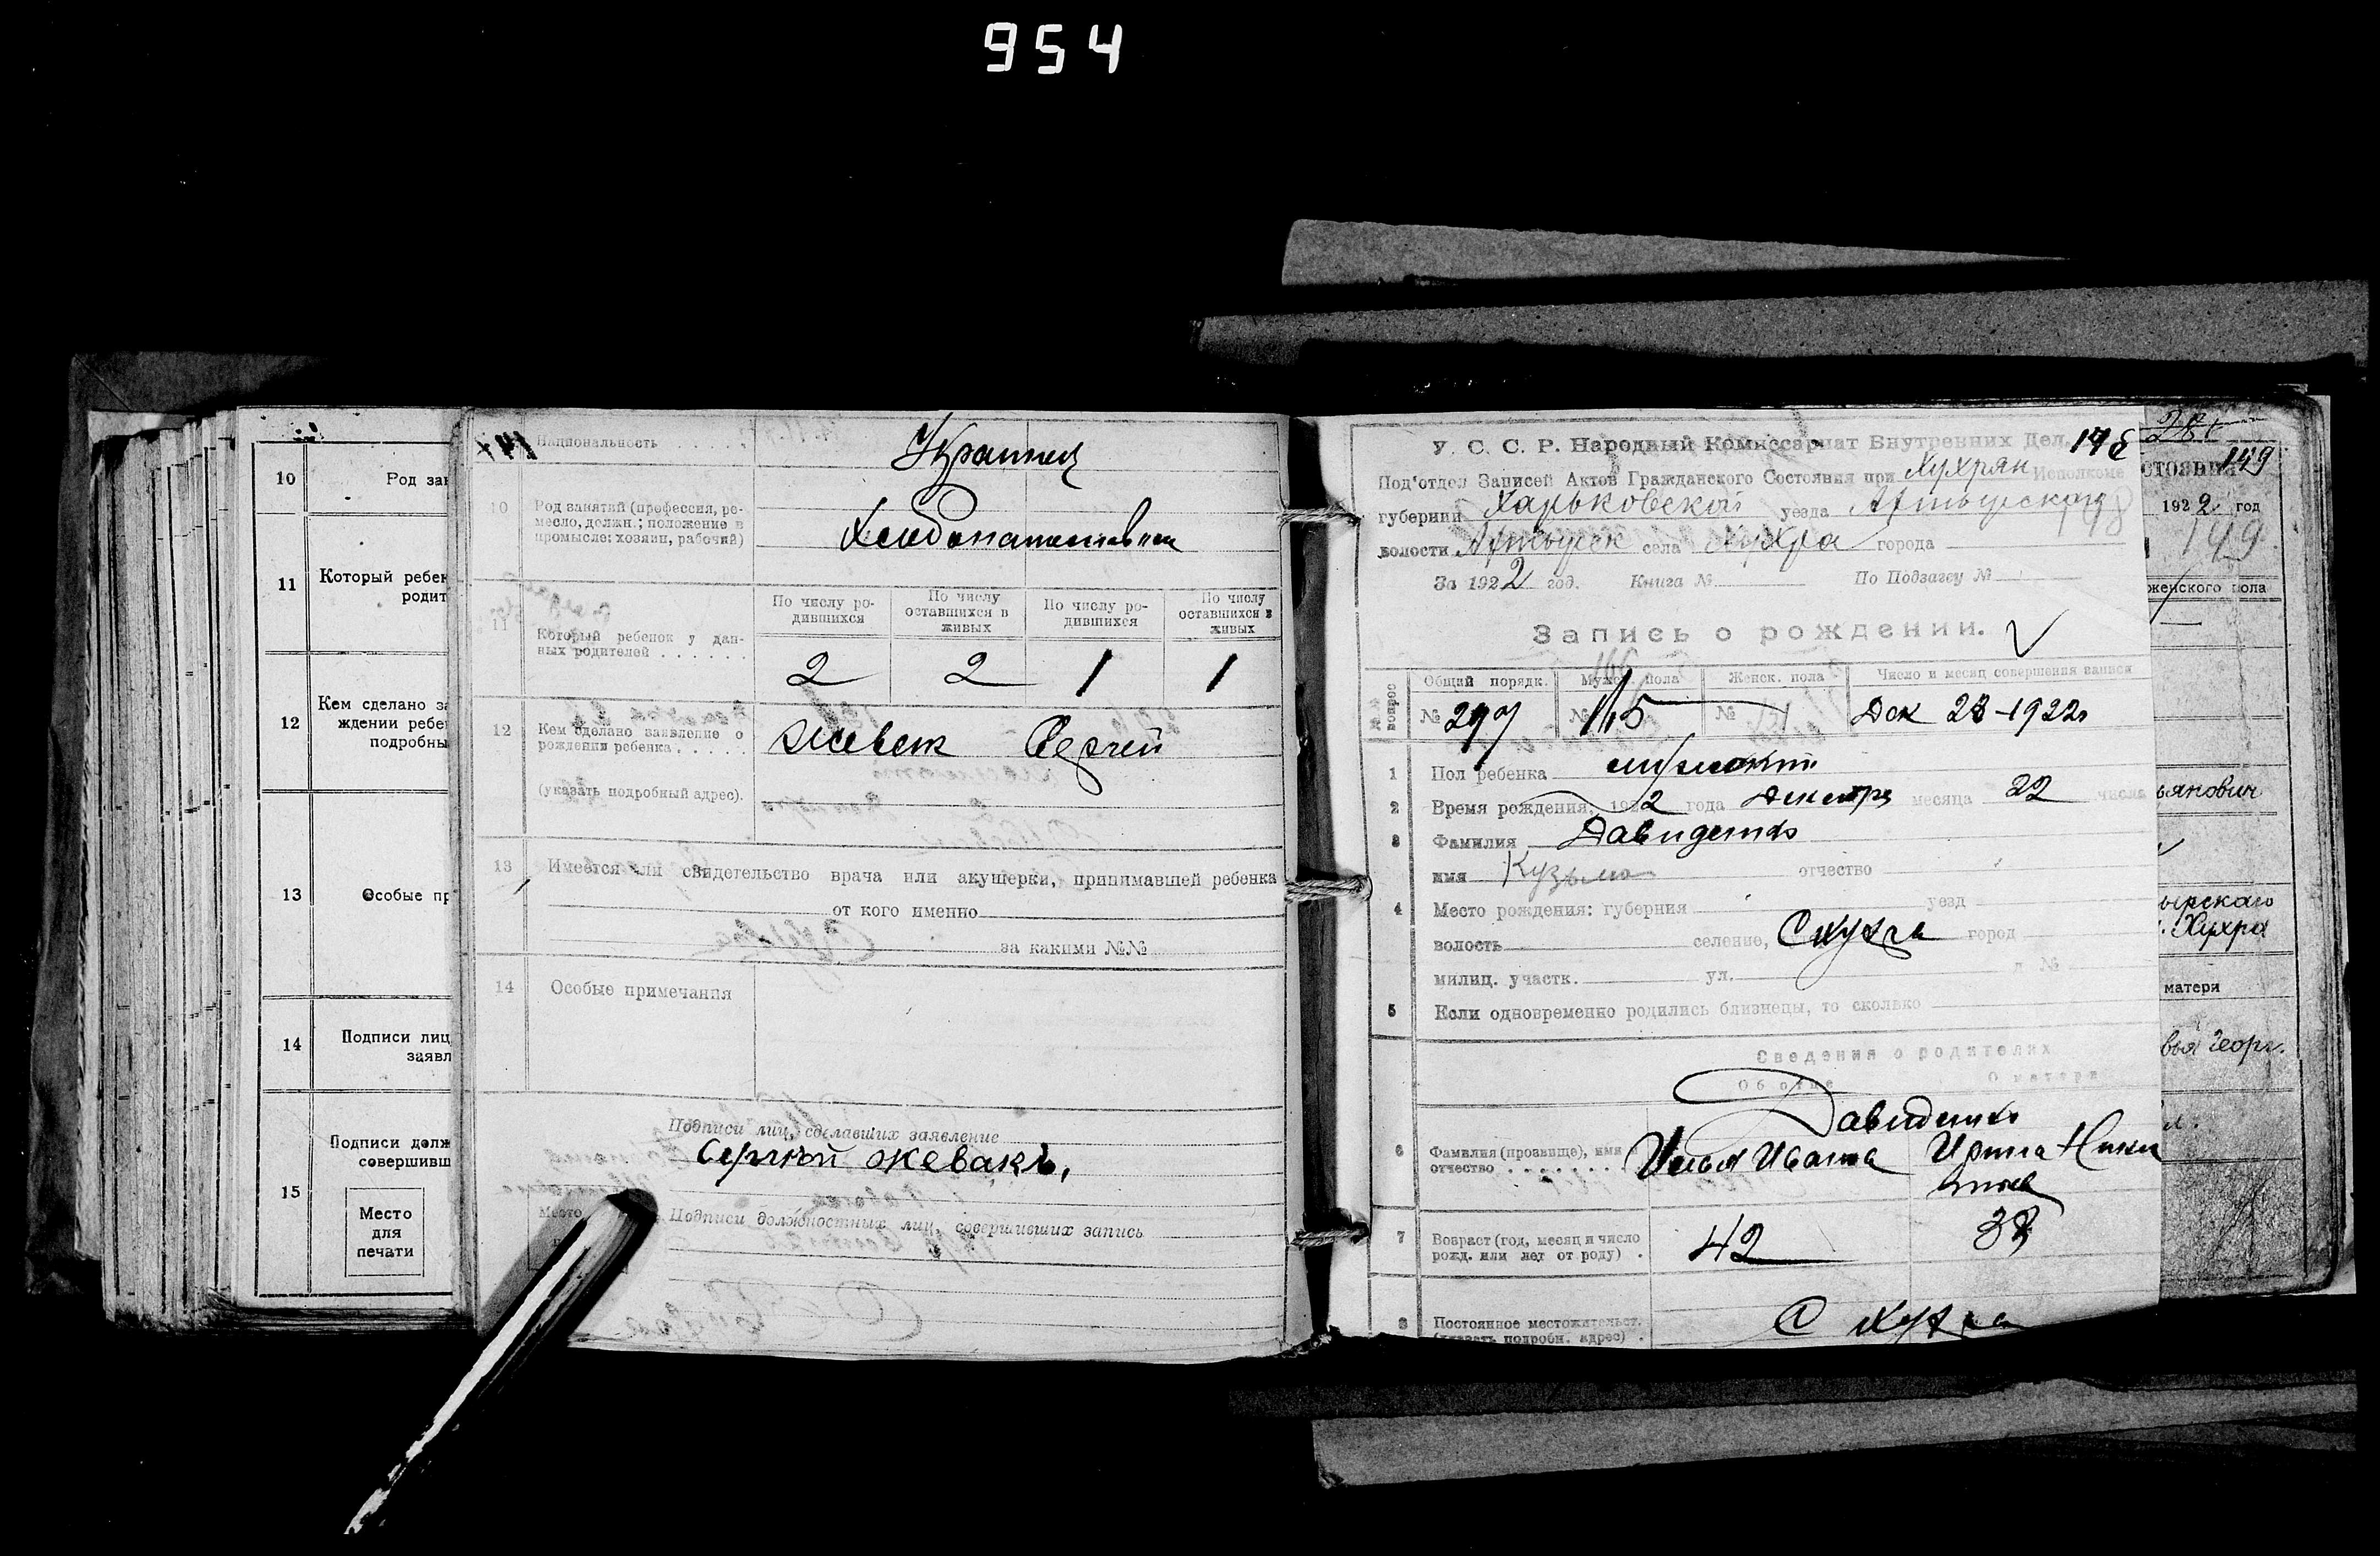 954
10
Род за
11
Который ребен
родит
12
Кем сделано за
ждении ребе
подробны
13
Особые пр
14
Подписи лиц
заявл
15
Подписи долж
совершивш
Место
для
печати
Национальность
Украинец
10
Род занятий (профессия, ре-
месло, должн.; положение в
промысле: хозяин, рабочий)
11
Который ребенок у дан-
ных родителей
По числу ро-
дившихся
По числу
оставшихся в
живых
По числу ро-
дившихся
По числу
оставшихся в
живых
2 2 1 1
12
Кем сделано заявление о
рождении ребенка
Сергей
(указать подробный адрес).
13
Имеется ли свидетельство врача или акушерки, принимавшей ребенка
от кого именно
за какими №№
14
Особые примечания
Подписи лиц, сделавших заявление
Сергѣй Жевакъ,
Место
Подписи должностных лиц, совершивших запись
У. С. С. Р. Народный Комиссариат Внутренних Дел. 148
Под'отдел Записей Актов Гражданского Состояния при Хухрян Исполкоме
губернии Харьковской уезда Ахтырского
148
волости Ахтырск села Хухра города
За 1922 год. Книга № По Подзагсу №
Запись о рождении.
№№ вопрос
Общий порядк.
Мужск. пола
Женск. пола
Число и месяц совершения записи
№ 297 № № Дек 23-1922
1 Пол ребенка
2 Время рождения, 1922 года Декабря месяца 22 числа
3 Фамилия Давиденко
имя Кузьма отчество
4 Место рождения: губерния уезд
волость селение, С Хухра город
милиц. участк. ул. д №
5 Если одновременно родились близнецы, то сколько
Сведения о родителях
Об отце О матери
Давиденко
6 Фамилия (прозвище), имя и
отчество
Илья Ирина
7 Возраст (год, месяц и число
рожд. или лет от роду)
42 38
8 Постоянное местожительст.
(указать подробн. адрес)
С Хухра
281
149
стояния
1922 год
149
женского пола
ьянович
ырскаго
Хухра
матери
вья Георг.